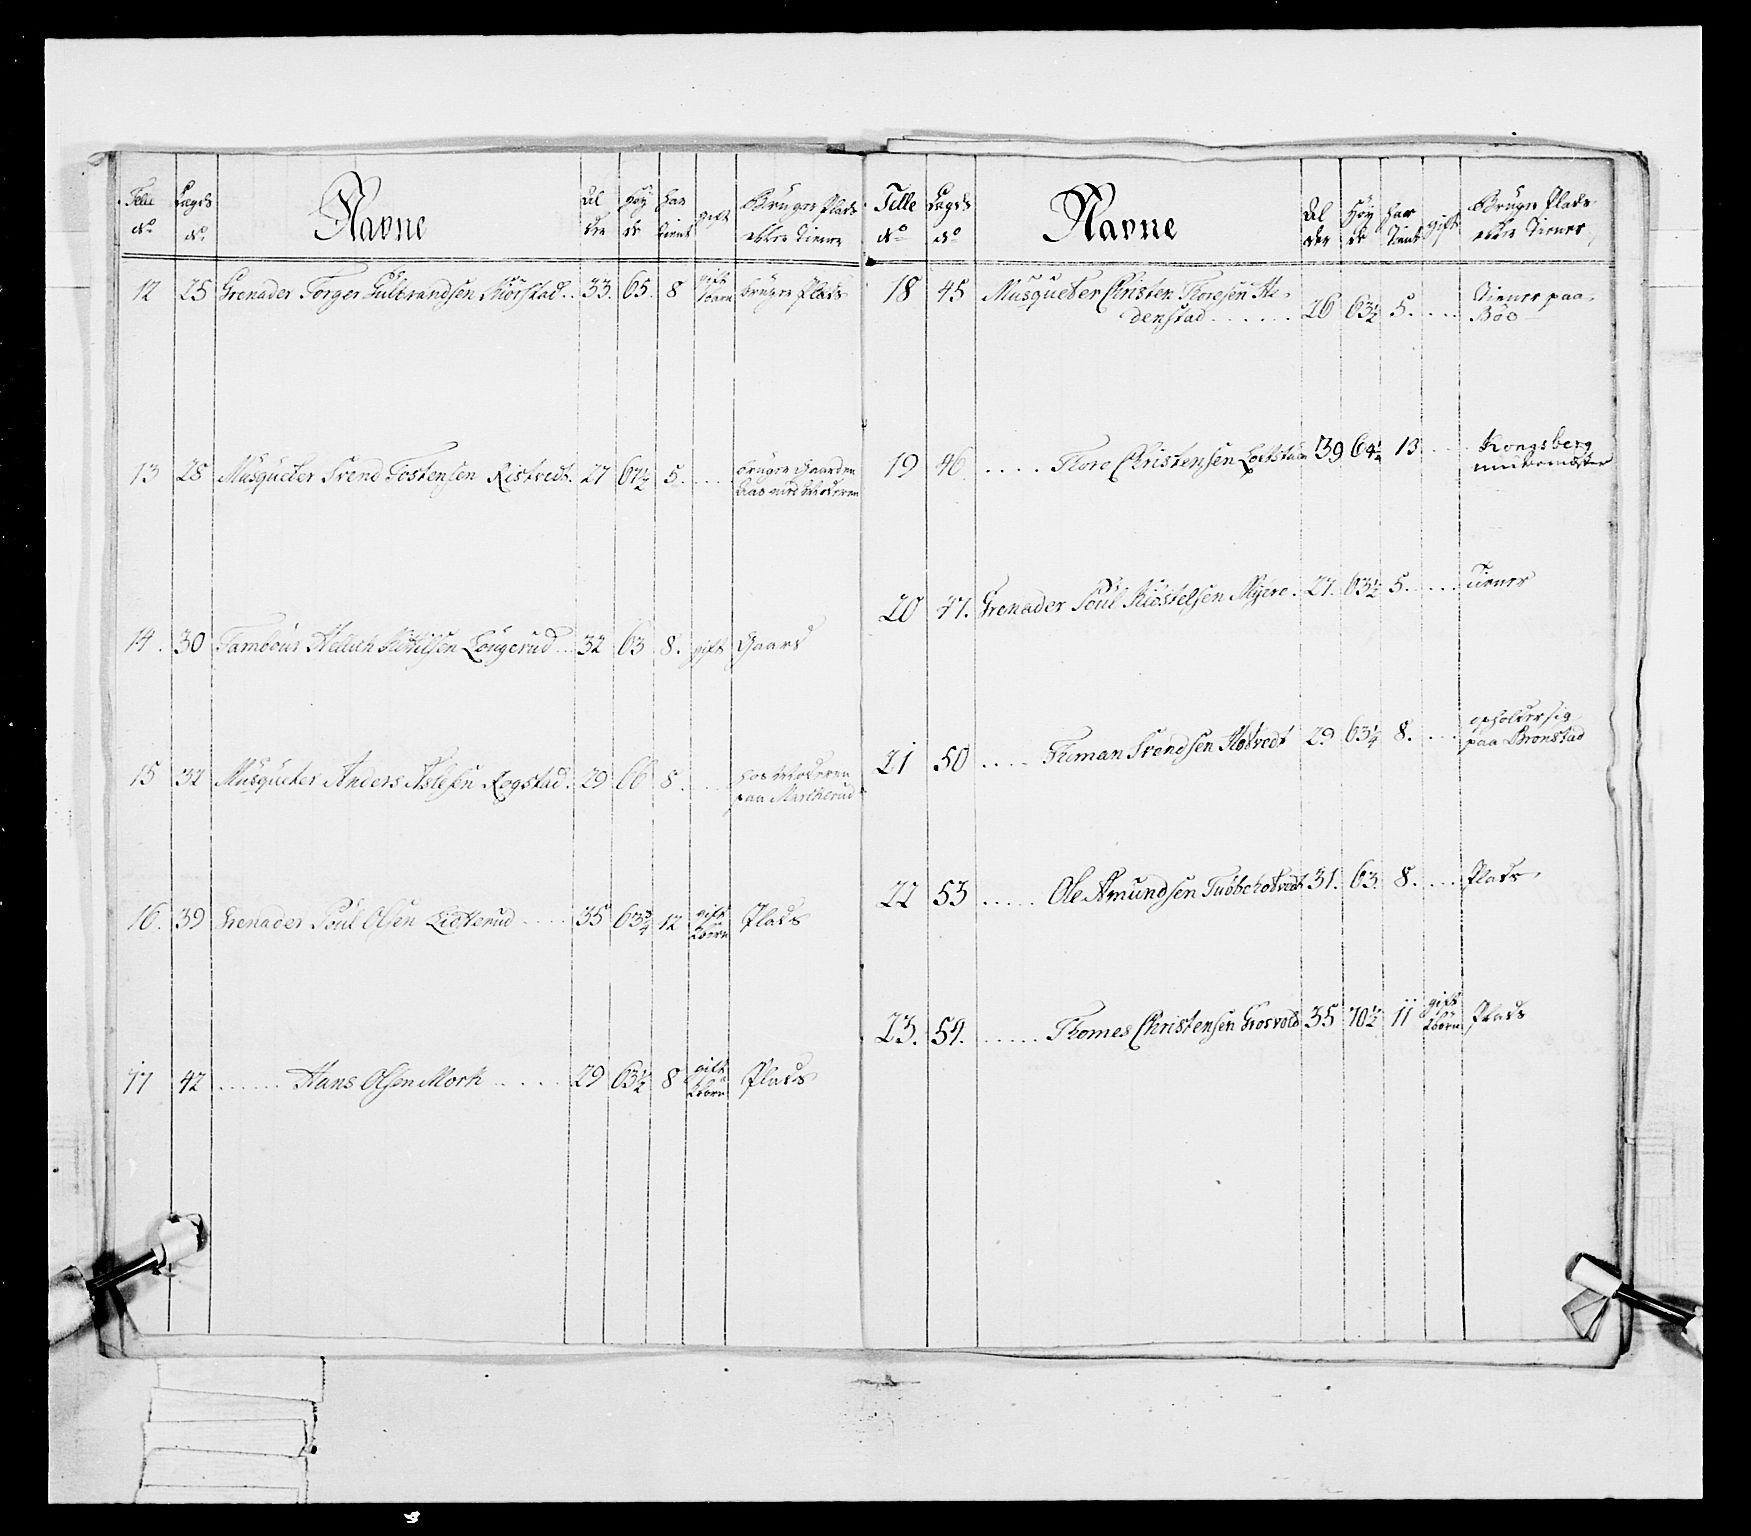 Telle No Lægds No Navne Al der Høy de har tient gift Bruger Plads eller Tiener
12 25 Grenader Torger Gulbrandsen Kiørstad .. 33. 65. 8 gift 1 børn bruger Plads
13 28 Musqueter Svend Tostensen Ristvedt. 27 67½ 5. .... bruger Gaarden
Aas med Moderen
14. 30 Tambour Hellech Kittilsen Lougerud .. 32 63 8. gift Gaard
15 32 Musqueter Anders Aslesen Rogstad. 29 66 8. .... hos Moderen
paa Mastherud
16. 39 Grenader Poul Olsen Lidterud ..... 35 63¾ 12 gift 2 børn Plads
17 42 ...... Hans Olsen Mork ..... 29 63½ 8 gift 2 børn Plads
Telle No Lægds No Navne Al der Høy de har Tient gift Bruger Plads eller Tiener
18 45 Musqueter Christen Thoresen He-
denstad ...... 26 63½ 5. .... Tiener paa
Böe
19 46 ..... Thore Christensen 39 64½ 13 .... Kongsberg
20 47. Grenader Poul Kiöstelsen Myere. 27. 63½ 5. .... tiener
21 50 .... Tieman Svendsen Hosvedt 29 63¼ 8. .... opholder sig
paa Bronstad
22 53 ..... Ole Amundsen 31. 63. 8. .... Plads
23. 54. ..... Thomes Christensen Grosvold 35 70½ 11 gift 2 børn Plads